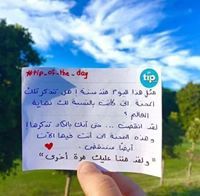 #tip_of_the_day
tip
مثل هذا اليوم منذ سنة ! هل تتذكر تلك
المحنة التي كانت بالنسبة لك نهاية
العالم ؟
لقد انقضت ... حتى أنك بالكاد تتذكرها !
وهذه المحنة التي أنت فيها الآن
أيضًا ستنقضي .
" ولقد مننا عليك مرة أخرى "